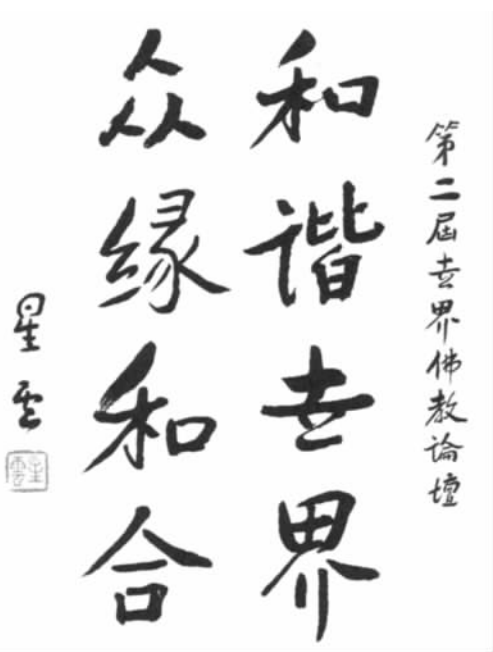 第二屆世界佛教論壇
和谐世界
众缘和合
星云
星雲